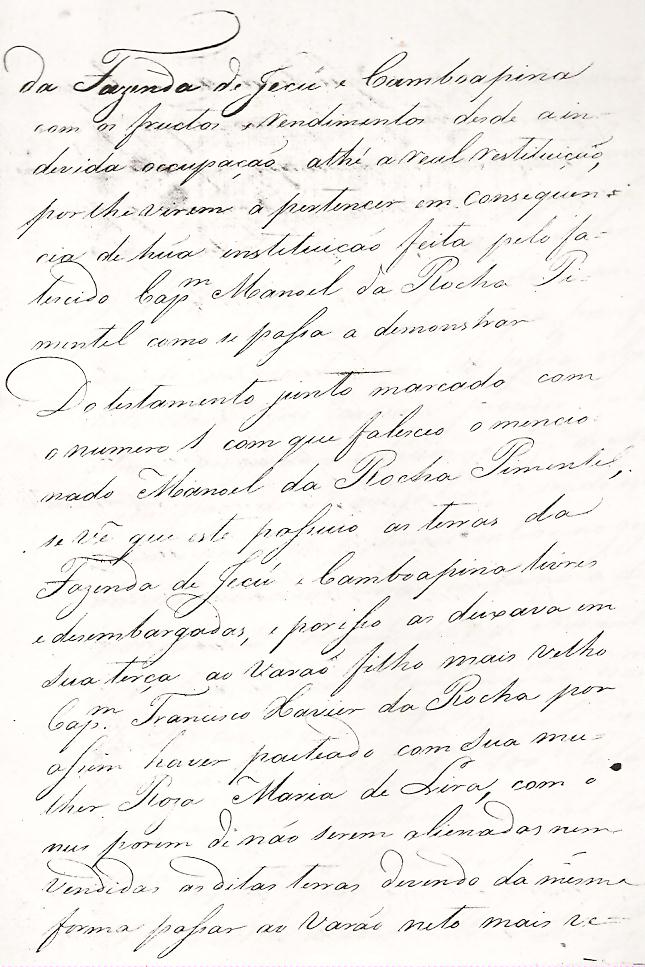 da Fazenda de Jecú e Camboapina
com os fructos e Rendimentos desde a in-
devida occupação athé a real restituição,
por lhe virem a pertencer em consequen-
cia de húa instituição feita pelo fa-
lescido Capm Manoel da Rocha Pi-
mentel como se passa a demonstrar
Do testamento junto marcado com
o numero 1 com que falesceo o mencio-
nado Manoel da Rocha Pimentel,
se vê que este possuio as terras da
Fazenda de Jecú e Camboapina livres
e desembargadas, e por isso as deixava em
sua terça ao Varaõ filho mais velho
Capm. Francisco Xavier da Rocha por
assim haver pacteado com sua mu-
lher Roza Maria de Lira, com o
nus porem di não serem alienadas nem
Vendidas as ditas terras devendo da mesma
forma passar ao Varão neto mais ve-